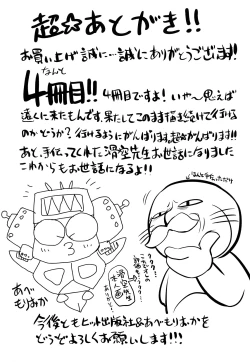 超☆あとがき!!
お買い上げ誠に…誠にありがとうございます!!
なんと
4冊目!! 4冊目ですよ!いや〜思えば
遠くに来たもんです。果たしてこのまま描き続けて行ける
のかどうか?行けるようにがんばります。超☆がんばります!!
あと、手伝ってくれた滑空先生お世話になりました
これからもお世話になるよ!!
あべ
もりおか
今後ともヒット出版社&あべもりおかを
どうぞよろしくお願いします!!!